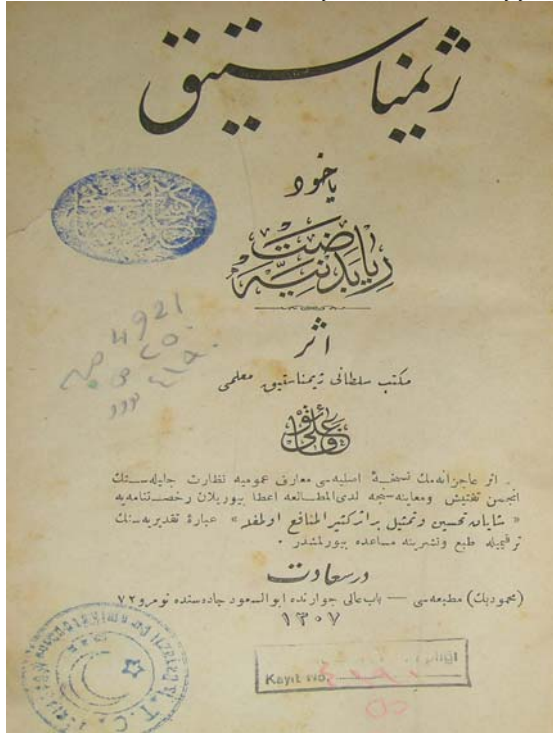 ژیمناستیق
یاخود
ریاضت بدنیه
اثر
مكتب سلطانی ژیمناستیق معلمی
علی فائق
اثر عاجزانه‌مك نسخهٔ اصلیه‌سی معارف عمومیه نظارت جلیله‌سنك
انجمن تفتیش ومعاینه‌سنجه لدی‌المطالعه اعطا بیوریلان رخصتنامه‌یه
« شایان تحسین وتمثیل بر اثر كثیر المنافع اولمغله » عبارهٔ تقدیریه‌سنك
ترقیمیله طبع ونشرینه مساعده بیورلمشدر ٠
درسعادت
(محمودبك) مطبعه‌سی — باب عالی جوارنده ابوالسعود جاده‌سنده نومرو ٧٢
١٣٠٧
4921
Kayıt No.
T. C.